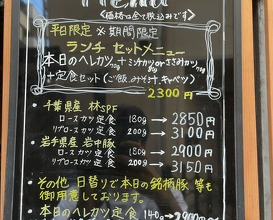 MENU
<価格は全て税込みです>
平日限定 ※期間限定
ランチ セットメニュー
本日のヒレカツ + ミンチカツ or ささみカツ
+ 定食セット(ご飯,みそ汁,キャベツ)
2300円
千葉県産 林SPF
ロースカツ定食 180g → 2850円
リブロースカツ定食 200g → 3100円
岩手県産 岩中豚
ロースカツ定食 180g → 2900円
リブロースカツ定食 200g → 3150円
その他 日替りで本日の銘柄豚 等も
御用意しております。
本日のヒレカツ定食 140g → 2900円~